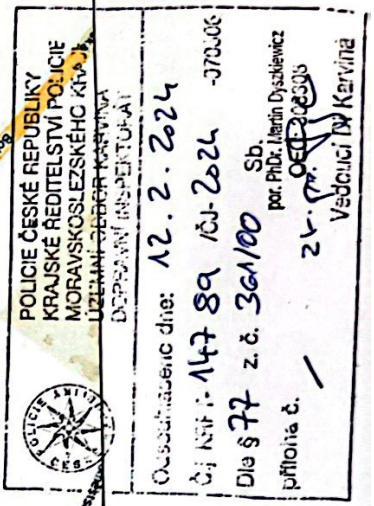 POLICIE ČESKÉ REPUBLIKY
KRAJSKÉ ŘEDITELSTVÍ POLICIE
MORAVSKOSLEZSKÉHO KRAJE
ÚZEMNÍ ODBOR KARVINÁ
DOPRAVNÍ INSPEKTORÁT
Odsouhlaseno dne: 12. 2. 2024
Čj. KRPT- 14789 /ČJ- 2024 -070306
Dle § 77 z. č. 361/00 Sb.
por. PhDr. Martin Dyszkiewicz
příloha č. /
Vedoucí DI Karviná